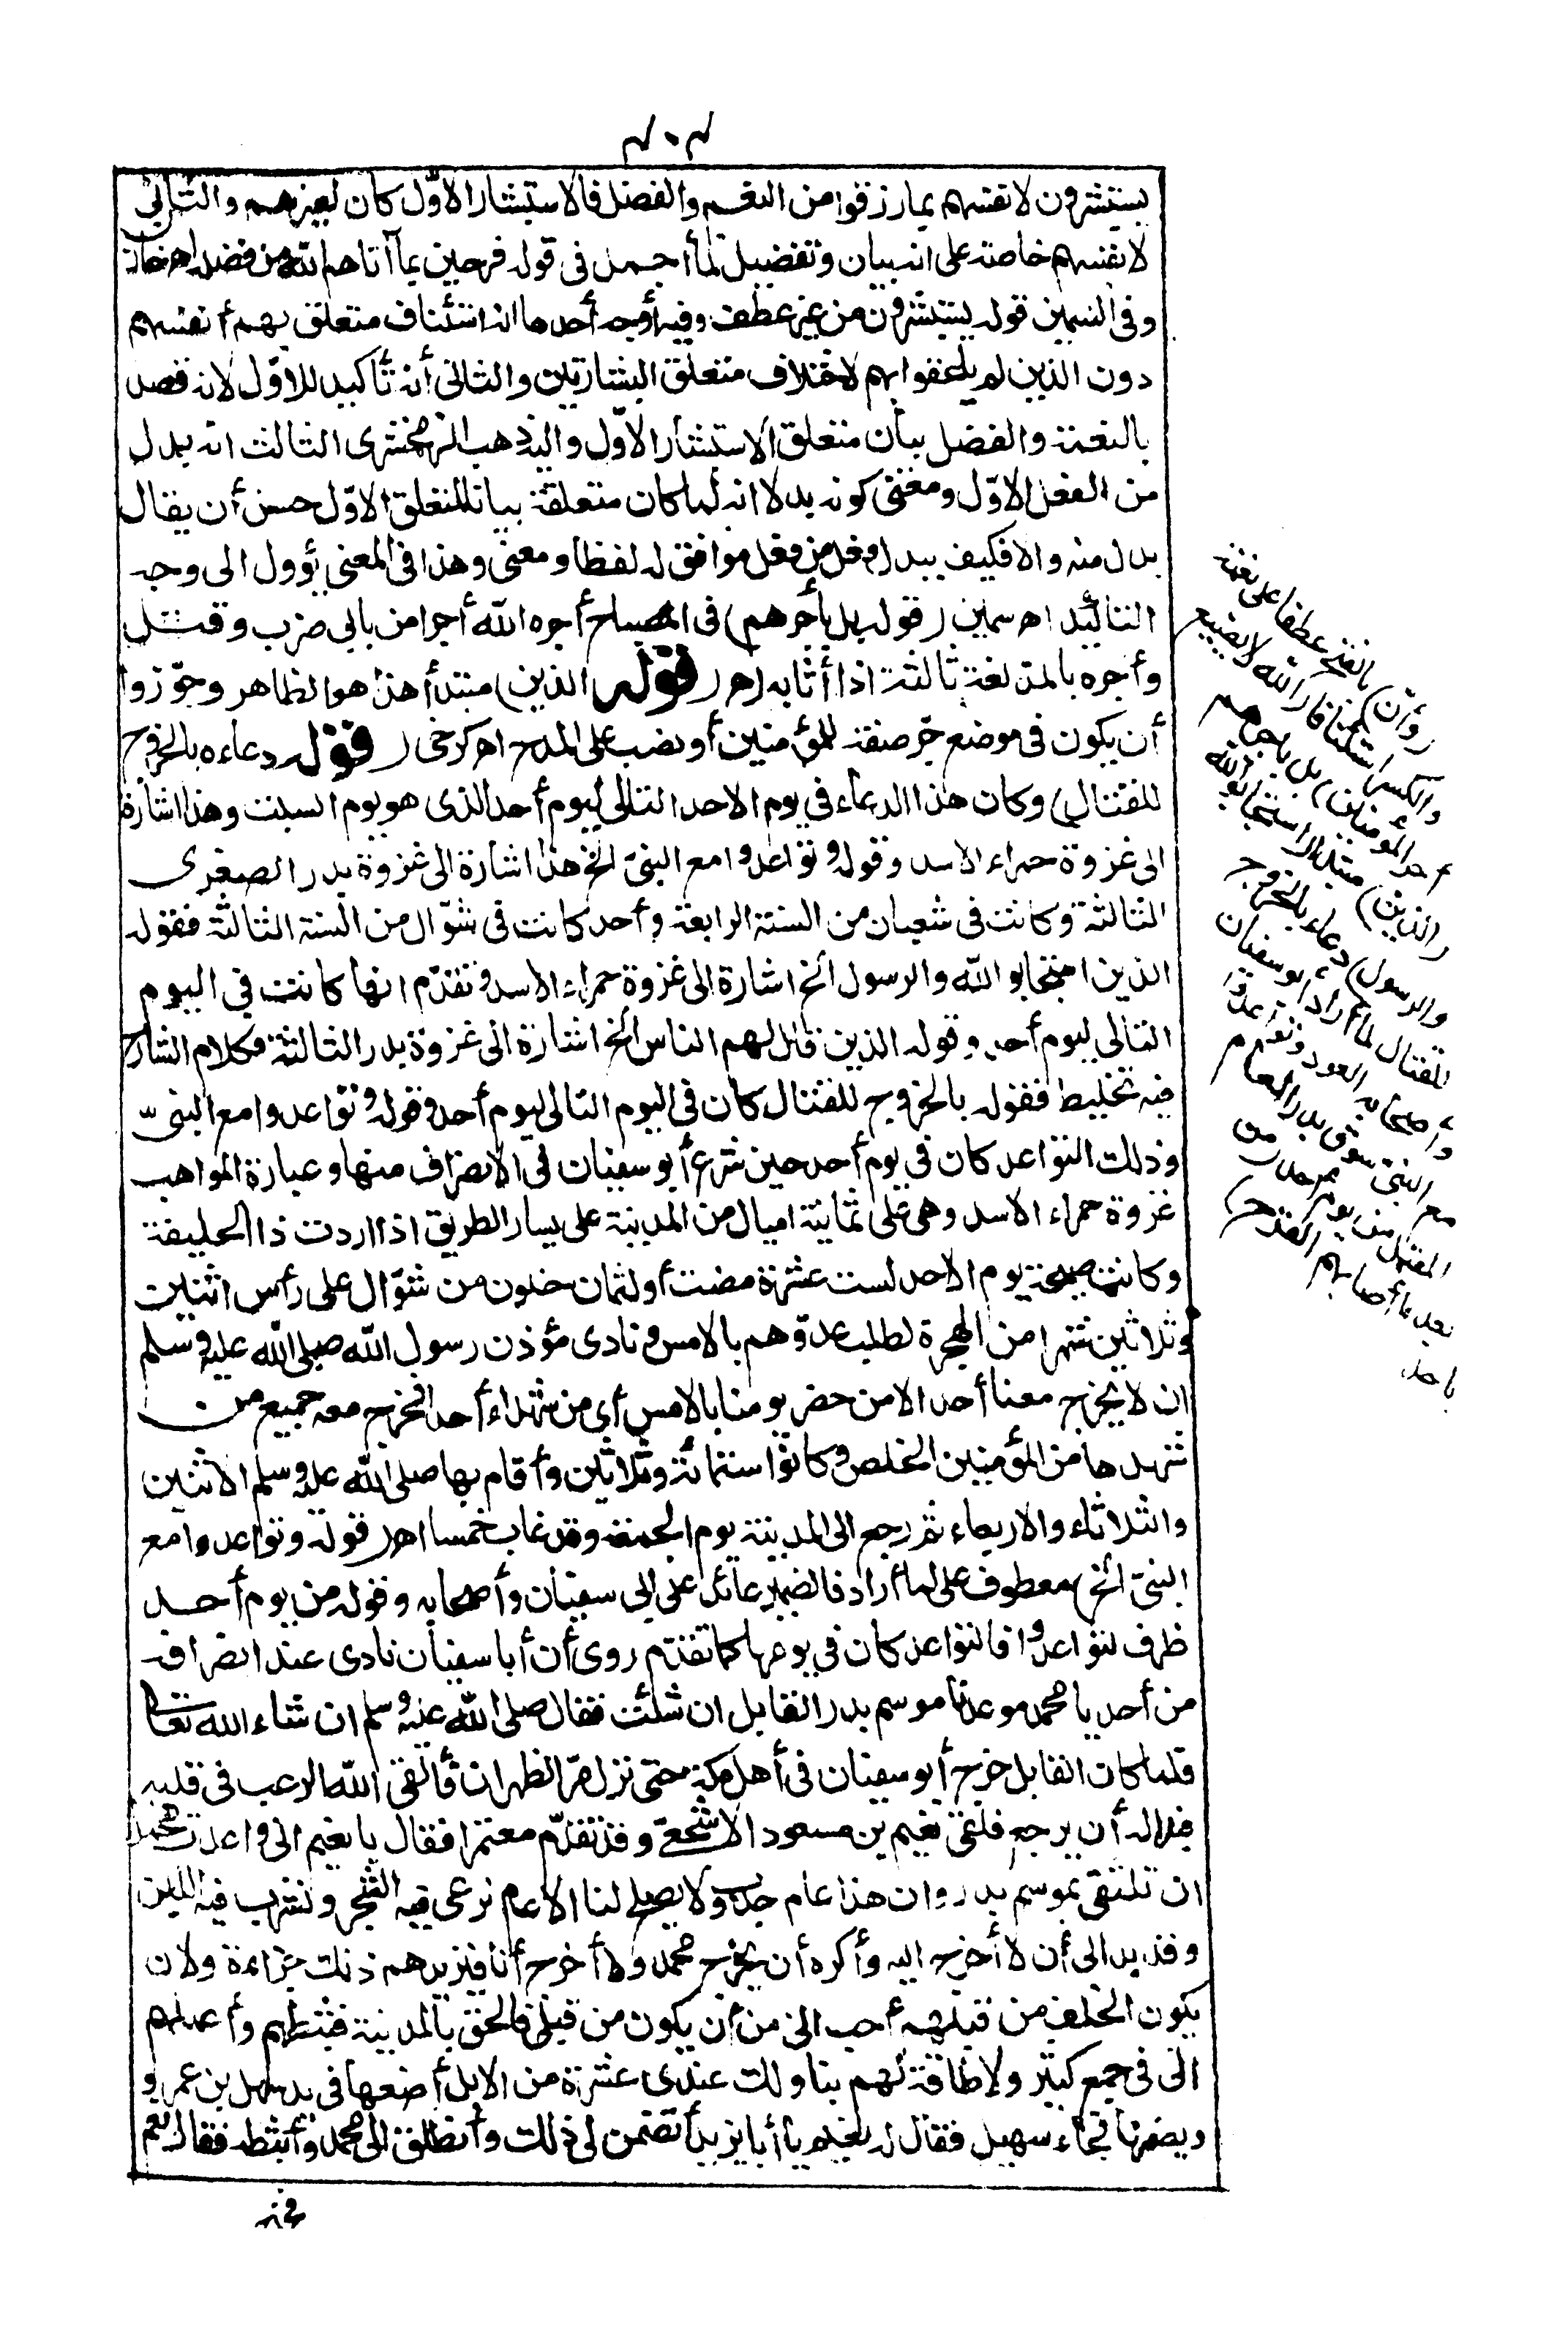 ٤٠٤
يستبشرون لانفسهم بما رزقوا من النعيم والفضل فالاستبشار الاوّل كان لغيرهم والثانى
لانفسهم خاصة على انه بيان وتفصيل لما أجمل فى قوله فرحين بما آتاهم الله من فضله اه خازن
وفى السمين قوله يستبشرون من غير عطف وفيه أوجه أحدها انه استئناف متعلق بهم أنفسهم
دون الذين لم يلحقوا بهم لاختلاف متعلق البشارتين والثانى أنه تأكيد للاوّل لانه قصد
بالنعمة والفضل بيان متعلق الاستبشار الاوّل واليه ذهب الزمخشرى الثالث انه بدل
من الفعل الاوّل ومعنى كونه بدلا انه لما كان متعلقة بيانا لمتعلق الاوّل حسن أن يقال
بدل منه والا فكيف يبدل فعل من فعل موافق له لفظا ومعنى وهذا فى المعنى يؤول الى وجه
التأكيد اه سمين (قوله بل يأجرهم) فى المصباح أجره الله أجرا من بابى ضرب وقتل
وأجره بالمد لغة ثالثة اذا أثابه اه (قوله الذين) مبتدأ هذا هو الظاهر وجوّزوا
أن يكون فى موضع جرّ صفة للمؤمنين أو نصب على المدح اه كرخى (قوله دعاءه بالخروج
للقتال) وكان هذا الدعاء فى يوم الاحد التالى ليوم أحد الذى هو يوم السبت وهذا اشارة
الى غزوة حمراء الاسد وقوله وتواعدوا مع النبىّ الخ هذا اشارة الى غزوة بدر الصغرى
الثالثة وكانت فى شعبان من السنة الرابعة وأحد كانت فى شوّال من السنة الثالثة فقوله
الذين استجابوا الله والرسول الخ اشارة الى غزوة حمراء الاسد وتقدّم انها كانت فى اليوم
التالى ليوم أحد وقوله الذين قال لهم الناس الخ اشارة الى غزوة بدر الثالثة فكلام الشارح
فيه تخليط فقوله بالخروج للقتال كان فى اليوم التالى ليوم أحد وقوله وتواعدوا مع النبىّ
وذلك التواعد كان فى يوم أحد حين شرع أبو سفيان فى الانصراف منها وعبارة المواهب
غزوة حمراء الاسد وهى على ثمانية اميال من المدينة على يسار الطريق اذا اردت ذا الحليفة
وكانت صبيحة يوم الاحد لست عشرة مضت أو لثمان خلون من شوّال على رأس اثنين
وثلاثين شهرا من الهجرة لطلب عدوّهم بالامس ونادى مؤذن رسول الله صلى الله عليه وسلم
ان لا يخرج معنا أحد الا من حضر يومنا بالامس أى من شهداء أحد فخرج معه جميع من
شهدها من المؤمنين الخلص وكانوا ستمائة وثلاثين وأقام بها صلى الله عليه وسلم الاثنين
والثلاثاء والاربعاء ثم رجع الى المدينة يوم الجمعة وقد غاب خمسا اه (قوله وتواعدوا مع
النبىّ الخ) معطوف على لما أراد فالضمير عائد على أبى سفيان وأصحابه وقوله من يوم أحد
ظرف لتواعدوا فالتواعد كان فى يومها كما تقدّم روى أن أبا سفيان نادى عند انصرافه
من أحد يا محمد موعدنا موسم بدر القابل ان شئت فقال صلى الله عليه وسلم ان شاء الله تعالى
فلما كان القابل خرج أبو سفيان فى أهل مكة حتى نزل مرّ الظهران فألقى الله الرعب فى قلبه
فبدا له أن يرجع فلقى نعيم بن مسعود الاشجعىّ وقد تقدّم معتمرا فقال يا نعيم انى واعدت محمدا
ان نلتقى بموسم بدر وان هذا عام جدب ولا يصلح لنا الا عام نرعى فيه الشجر ونشرب فيه اللبن
وقد بدا لى أن لا أخرج اليه وأكره أن يخرج محمد ولا أخرج أنا فيزيدهم ذلك جراءة ولان
يكون الخلف من قبلهم أحب الىّ من أن يكون من قبلى فالحق بالمدينة فثبطهم وأعلمهم
انى فى جمع كثير ولا طاقة لهم بنا ولك عندى عشرة من الابل أضعها فى يد سهل بن عمرو
ويضمنها فجاء سهيل فقال له نعيم يا أبا يزيد أتضمن لى ذلك وأنطلق الى محمد وأثبطه فقال نعم
(وأن) بالفتح عطفا على نعمة
والكسر استئنافا (الله لا يضيع
أجر المؤمنين) بل يأجرهم
(الذين) مبتدأ (استجابوا لله
والرسول) دعاءه بالخروج
للقتال لما أراد أبو سفيان
وأصحابه العود وتواعدوا
مع النبىّ سوق بدر العام
المقبل من يوم أحد (من
بعد ما أصابهم القرح)
باحد